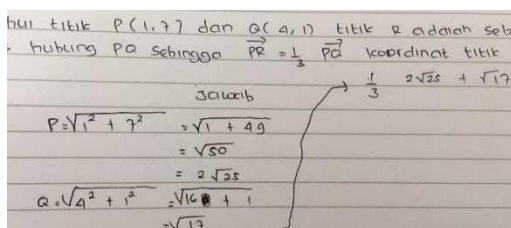 hui titik P(1,7) dan Q(4,1) titik R adalah seb
hubung PQ sehingga PR→ = 1/3 PQ→ koordinat titik
Jawab
P = √1² + 7² = √1 + 49
= √50
= 2√25
Q = √4² + 1² = √16 + 1
= √17
→ 1/3 2√25 + √17